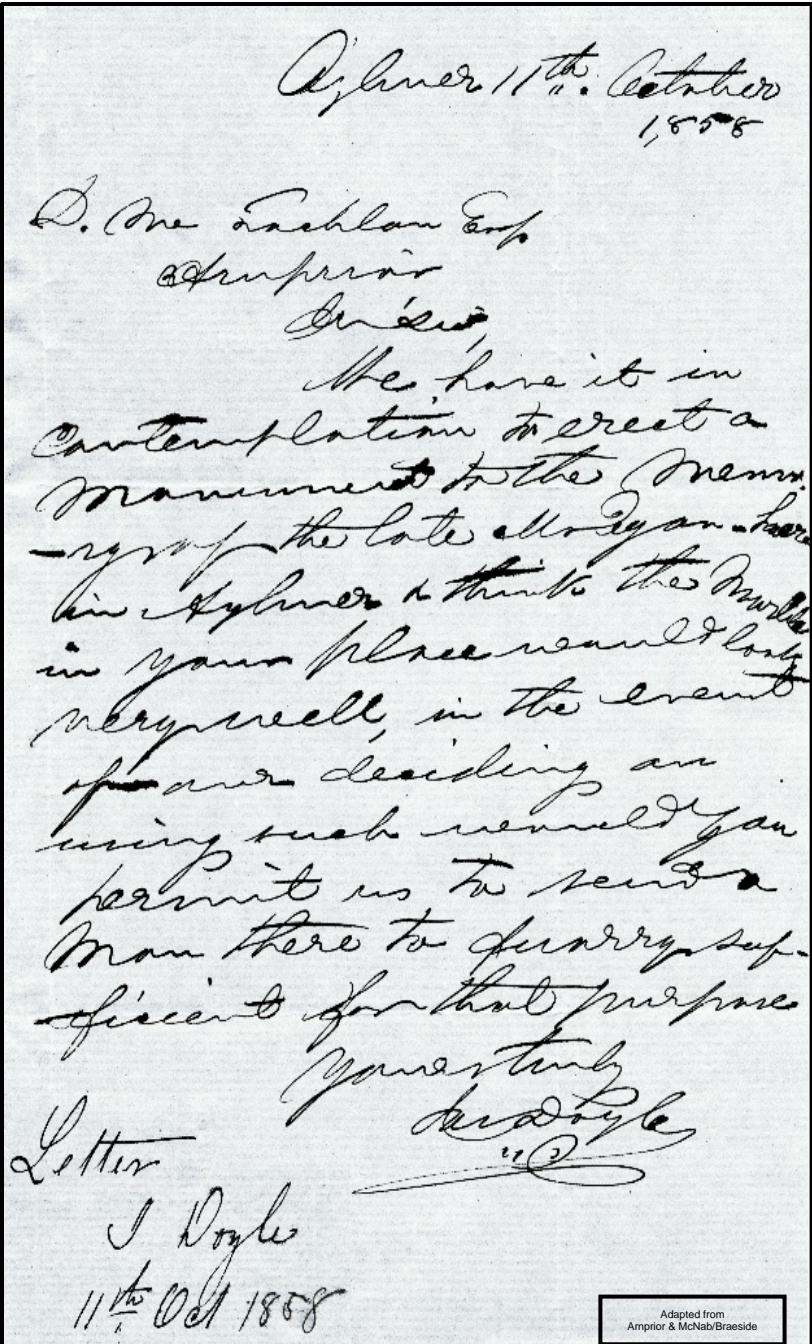 Aylmer 11th. October
1,858
D. Mc Lachlan Esq
Arnprior
Dr Sir,
We have it in
Contemplation to erect a
Monument to the Memo-
-ry of the late Mr Egan - here
in Aylmer & think the Marble
in your place would look
very well, in the event
of our deciding on
using such would you
permit us to send a
Man there to Quarry suf-
-ficient for that purpose
Yours truly
Jas Doyle
Letter
J Doyle
11th Oct 1858
Adapted from
Arnprior & McNab/Braeside